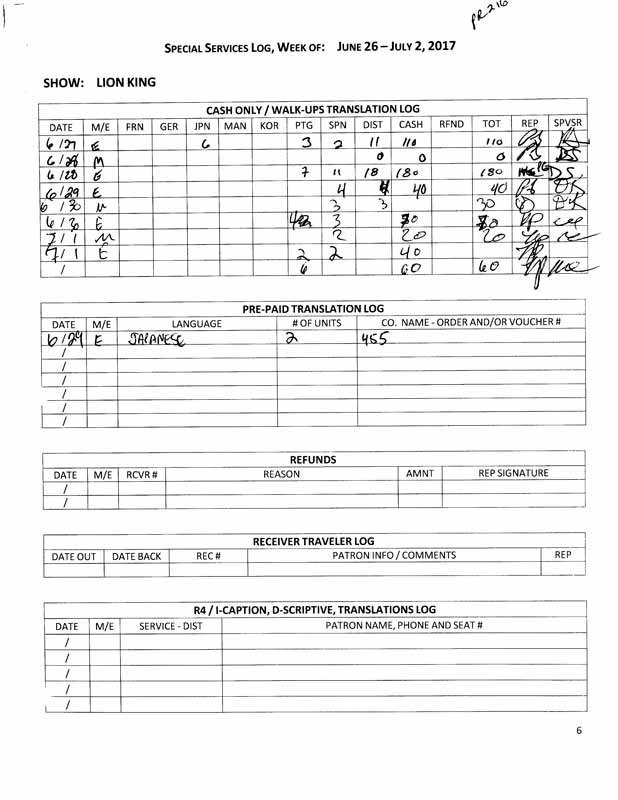 PR216
SPECIAL SERVICES LOG, WEEK OF: JUNE 26 – JULY 2, 2017
SHOW: LION KING
CASH ONLY / WALK-UPS TRANSLATION LOG
DATE M/E FRN GER JPN MAN KOR PTG SPN DIST CASH RFND TOT REP SPVSR
6/27 E 6 3 2 11 110 110
6/28 M 0 0 0
6/28 E 7 11 18 180 180
6/29 E 4 4 40 40
6/30 M 3 3 30
6/30 E 3
7/1 M 2 20 20
7/1 E 2 2 40
/ 6 60 60
PRE-PAID TRANSLATION LOG
DATE M/E LANGUAGE # OF UNITS CO. NAME - ORDER AND/OR VOUCHER #
6/29 E JAPANESE 2 455
/
/
/
/
/
/
REFUNDS
DATE M/E RCVR # REASON AMNT REP SIGNATURE
/
/
RECEIVER TRAVELER LOG
DATE OUT DATE BACK REC # PATRON INFO / COMMENTS REP
R4 / I-CAPTION, D-SCRIPTIVE, TRANSLATIONS LOG
DATE M/E SERVICE - DIST PATRON NAME, PHONE AND SEAT #
/
/
/
/
/
6